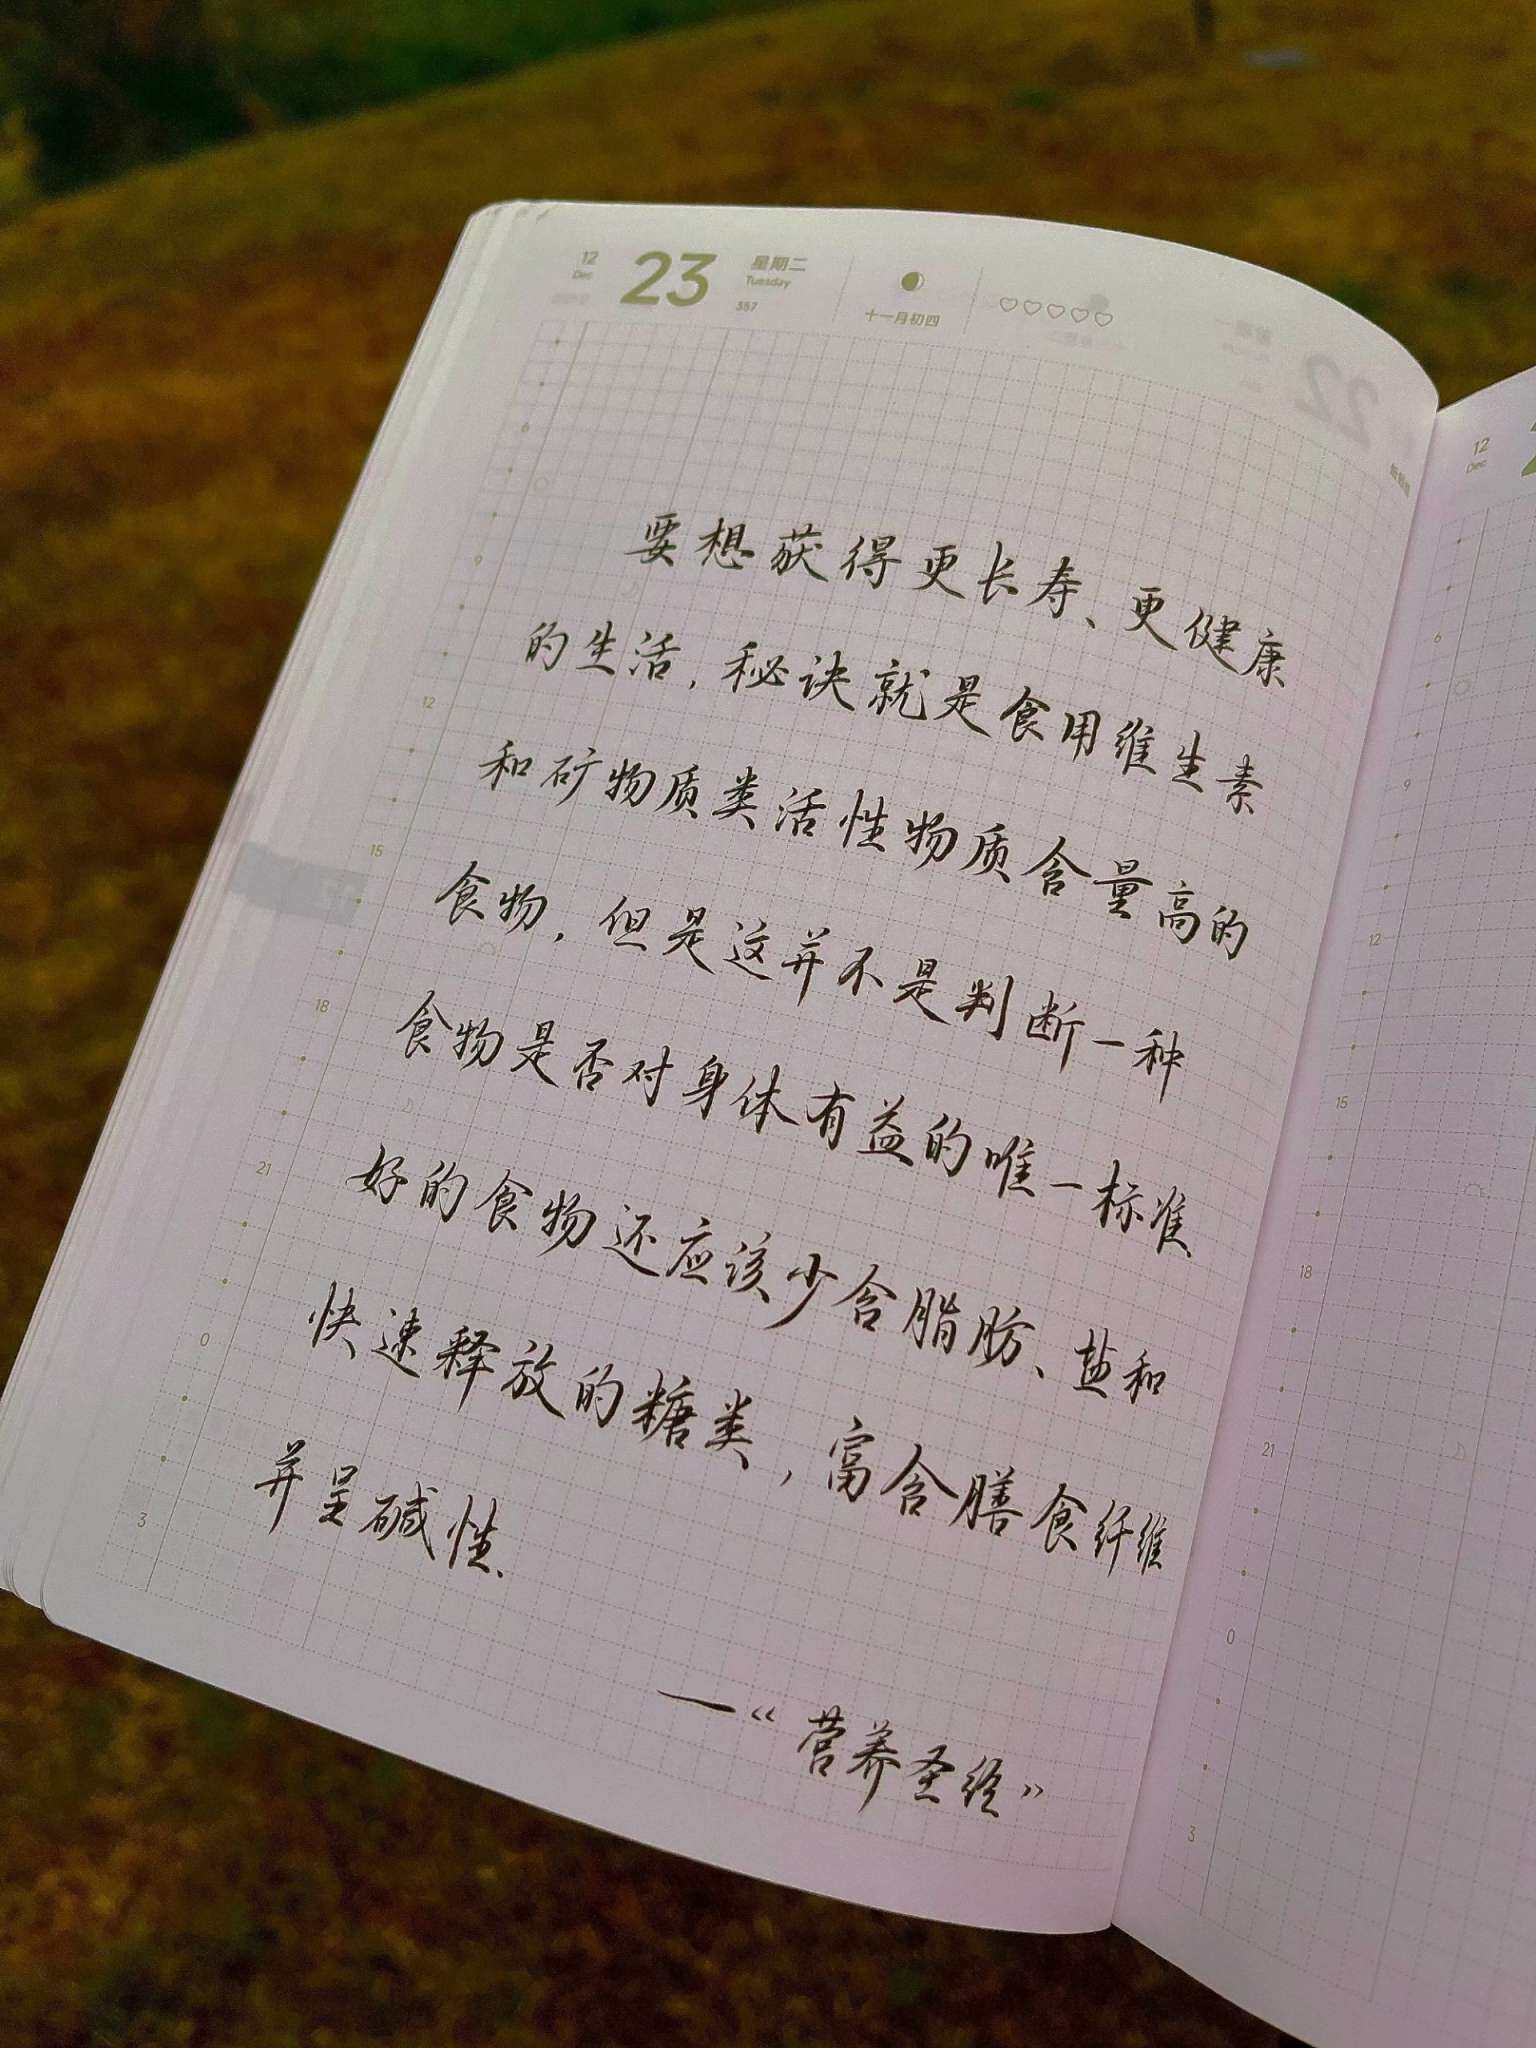 12 23 星期二
Dec Tuesday
357
十一月初四
要想获得更长寿、更健康
的生活，秘诀就是食用维生素
和矿物质类活性物质含量高的
食物，但是这并不是判断一种
食物是否对身体有益的唯一标准
好的食物还应该少含脂肪、盐和
快速释放的糖类，富含膳食纤维
并呈碱性、
—《营养圣经》
6
9
12
15
18
21
0
3
12
Dec
6
9
12
15
18
21
0
3